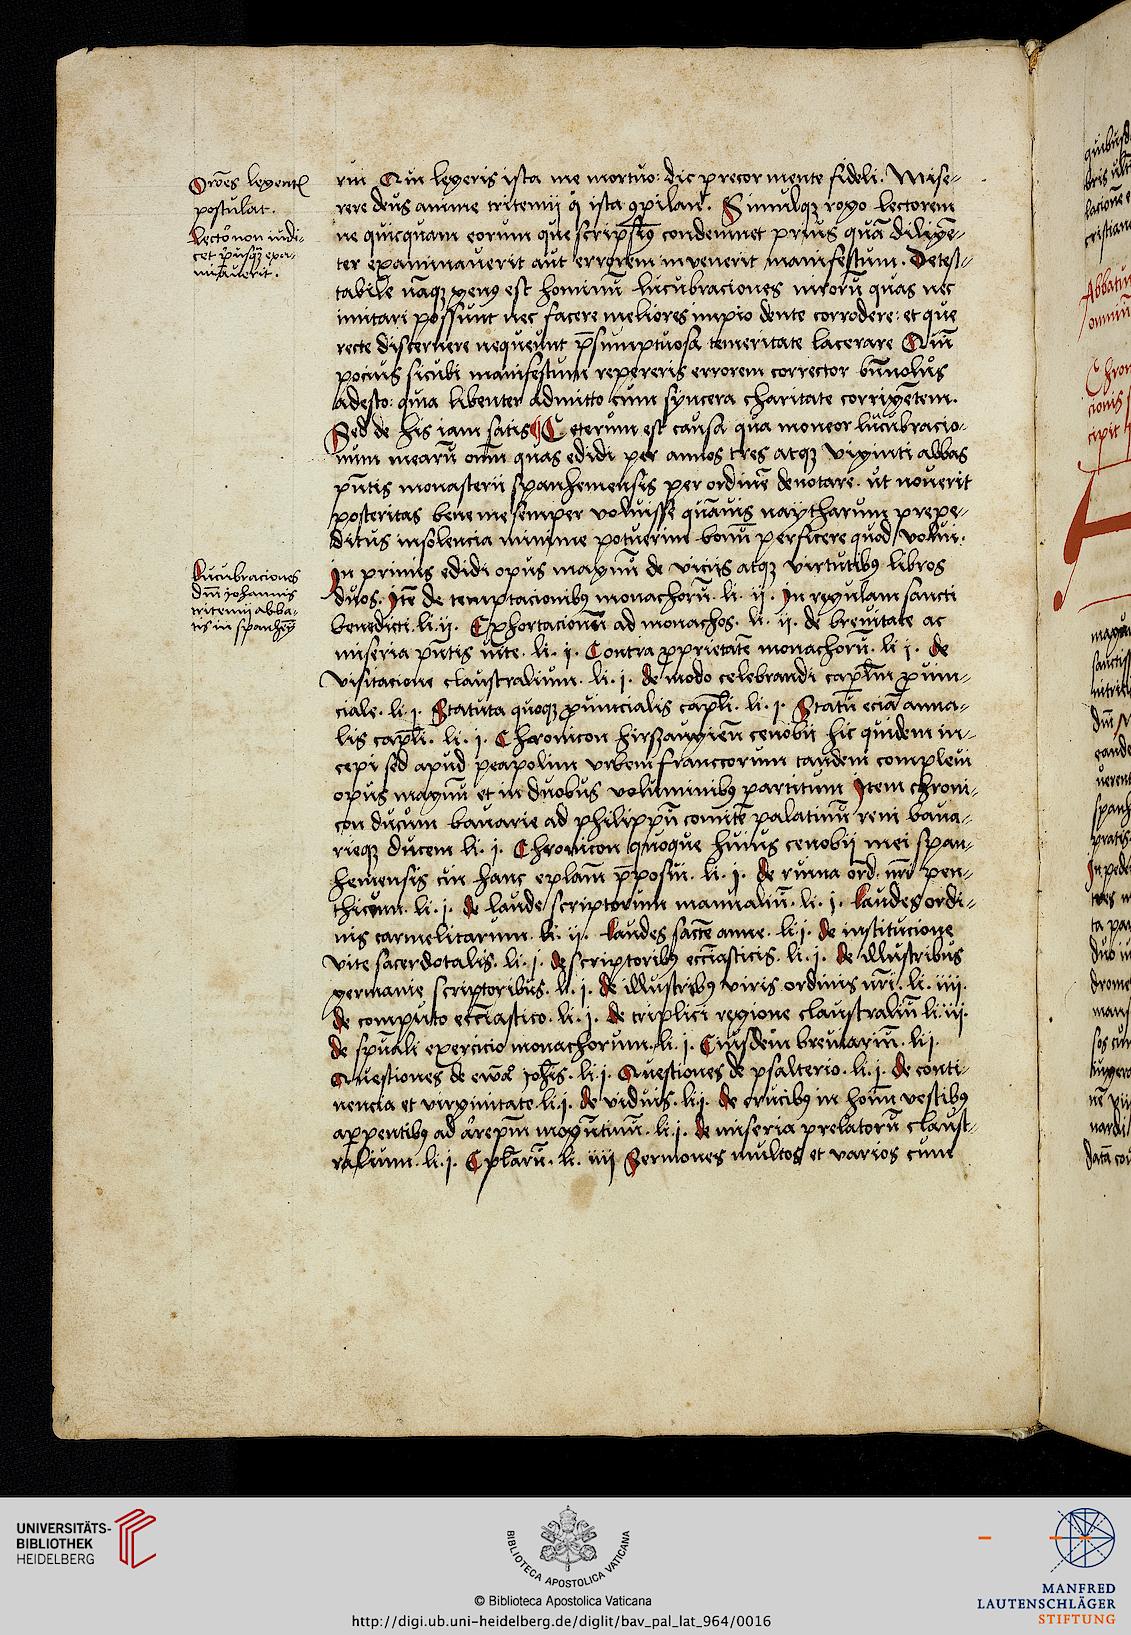 Oracōes legentꝭ
postulat.
Lector non iudi-
cet priusqꝫ exa-
minauerit.
rui Qui legeris ista me mortuo: dic precor mente fideli. Mise-
rere deus anime tritemij qͥ ista ꝯpilauit. Simulqꝫ rogo lectorem
ne quicquam eorum que scripsimꝰ condemnet prius quā diligē-
ter examinauerit aut errorem invenerit manifestum. Detes-
tabile naqꝫ genꝰ est hominū lucubraciones nirorū quas nec
imitari possunt nec facere meliores impio dente corrodere: et que
recte discernere nequeunt p̄sumptuosa temeritate lacerare Quī
pocius sicubi manifestum repereris errorem corrector bn̄uolus
adesto: quia libenter admitto cum syncera charitate corrigētem.
Sed de his iam satis Ceterum est causa qua moneor lucubracio-
num mearū om̄m quas edidi per annos tres atqꝫ viginti abbas
pn̄tis monasterii spanhemensis per ordinē denotare. ut nouerit
posteritas bene me semper voluisse quāuis naytharum prepe-
ditus insolencia minime potuerim bonū perficere quod volui.
In primis edidi opus magnū de viciis atqꝫ virtutibꝰ libros
duos. Itē de temptacionibꝰ monachorū. li. ij. In regulam sancti
benedicti. li. ij. Exhortacionū ad monachos. li. ij. de breuitate ac
miseria pn̄tis vite. li. j. Contra ꝓprietatē monachorū. li j. de
visitacione claustralium. li. j. de modo celebrandi capl̄m ꝓuin-
ciale. li. j. Statuta quoqꝫ ꝓuincialis capl̄i. li. j. Statū eciā anna-
lis capl̄i. li. j. Chronicon hirsaugien̄ cenobii hic quidem in-
cepi sed apud peapolim vrbem franccorum tandem compleui
opus magnū et in duobus voluminibꝰ partitum Item chroni-
con ducum bauarie ad philippū comitē palatinū reni baua-
rieqꝫ ducem li. j. Chronicon quoque huius cenobij mei span-
hemensis cui hanc epl̄am p̄posui. li. j. de ruina ord. nr̄i pen-
thicum. li. j. de laude scriptorum manualiū. li. j. Laudes ordi-
nis carmelitarum. li. ij. Laudes sacte anne. li. j. de institucione
vite sacerdotalis. li. j. de scriptoribꝰ ecciasticis. li. j. de illustribus
germanie scriptoribus. li. j. de illustribꝰ viris ordinis nr̄i. li. iiij.
de computo ecciastico. li. j. de triplici regione claustraliū li. iij.
de spūali exercicio monachorum. li. j. Eiusdem breuiariū. li j.
Questiones de ewāᷓ Joh̄is. li. j. Questiones de psalterio. li. j. de conti-
nencia et virginitate li. j. de viduis. li. j. de crucibꝰ in hoīm vestibꝰ
apparentibꝰ ad arep̄m mogūtinū. li. j. de miseria prelatorū claust-
ralium. li. j. Epl̄arū. li. iiij Sermones multos et varios cum
Lucubraciones
dn̄i iohannis
tritemij abba-
tis in spanhē
UNIVERSITÄTS-
BIBLIOTHEK
HEIDELBERG
BIBLIOTECA APOSTOLICA VATICANA
© Biblioteca Apostolica Vaticana
http://digi.ub.uni-heidelberg.de/diglit/bav_pal_lat_964/0016
MANFRED
LAUTENSCHLÄGER
STIFTUNG